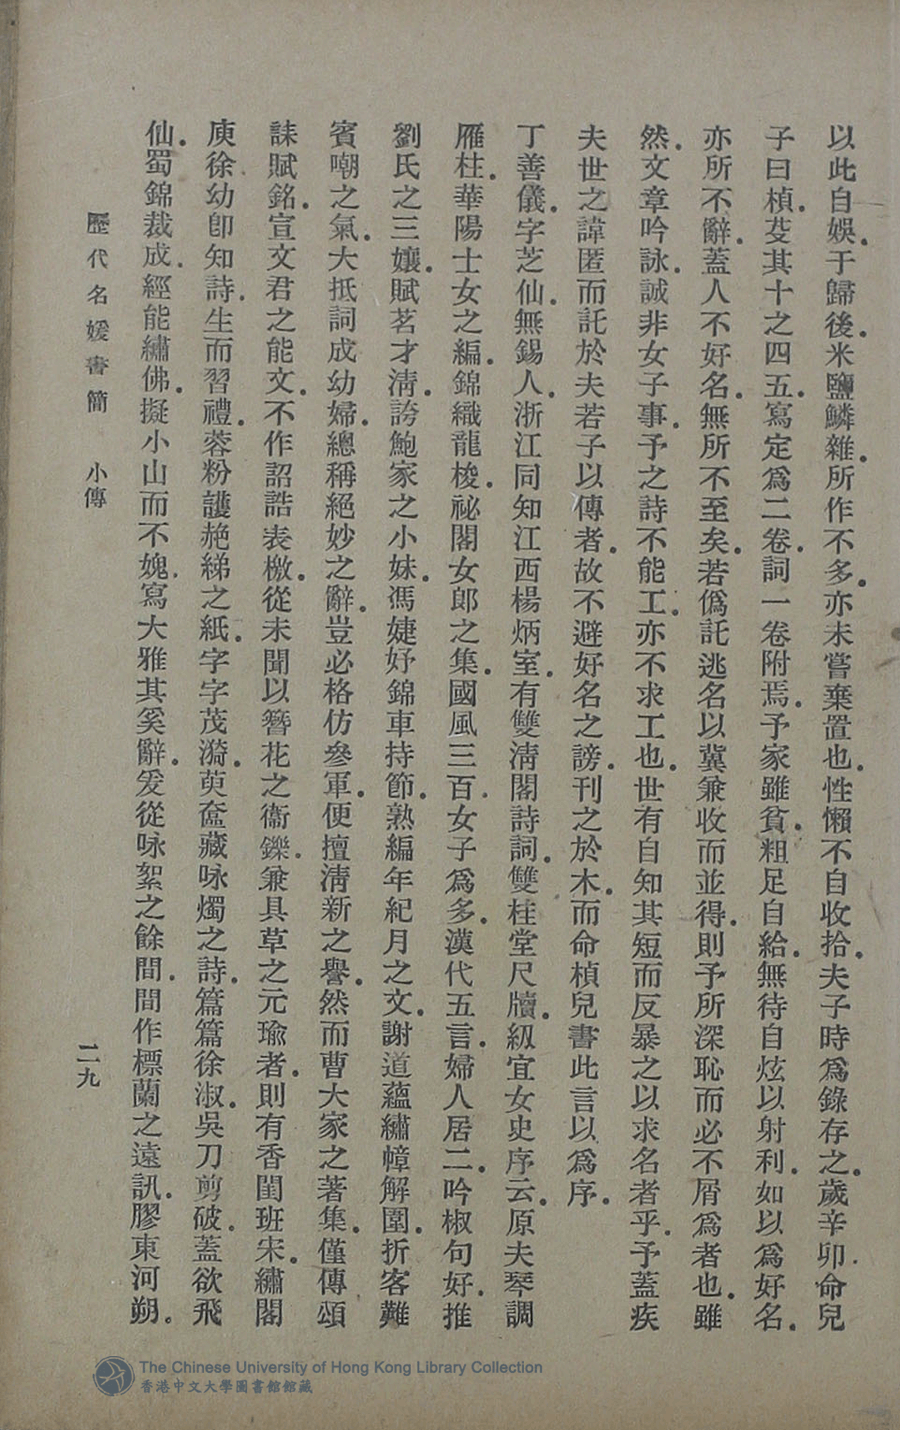 以此自娛。于歸後。米鹽鱗雜。所作不多。亦未嘗棄置也。性懶不自收拾。夫子時爲錄存之。歲辛卯。命兒
子曰楨。芟其十之四五。寫定爲二卷。詞一卷附焉。予家雖貧。粗足自給。無待自炫以射利。如以爲好名。
亦所不辭。蓋人不好名。無所不至矣。若僞託逃名以冀兼收而並得。則予所深恥而必不屑爲者也。雖
然。文章吟詠。誠非女子事。予之詩不能工。亦不求工也。世有自知其短而反暴之以求名者乎。予蓋疾
夫世之諱匿而託於夫若子以傳者。故不避好名之謗。刊之於木。而命楨兒書此言以爲序。
丁善儀。字芝仙。無錫人。浙江同知江西楊炳室。有雙淸閣詩詞。雙桂堂尺牘。級宜女史序云。原夫琴調
雁柱。華陽士女之編。錦織龍梭。祕閣女郞之集。國風三百。女子爲多。漢代五言。婦人居二。吟椒句好。推
劉氏之三孃。賦茗才淸。誇鮑家之小妹。馮婕妤錦車持節。熟編年紀月之文。謝道蘊繡幛解圍。折客難
賓嘲之氣。大抵詞成幼婦。總稱絕妙之辭。豈必格仿參軍。便擅淸新之譽。然而曹大家之著集。僅傳頌
誄賦銘。宣文君之能文。不作詔誥表檄。從未聞以簪花之衞鑠。兼具草之元瑜者。則有香閨班宋。繡閣
庾徐。幼卽知詩。生而習禮。蓉粉護赩綈之紙。字字茂漪。萸奩藏咏燭之詩。篇篇徐淑。吳刀剪破。蓋欲飛
仙。蜀錦裁成。經能繡佛。擬小山而不媿。寫大雅其奚辭。爰從咏絮之餘間。間作標蘭之遠訊。膠東河朔。
歷代名媛書簡 小傳 二九
The Chinese University of Hong Kong Library Collection
香港中文大學圖書館館藏